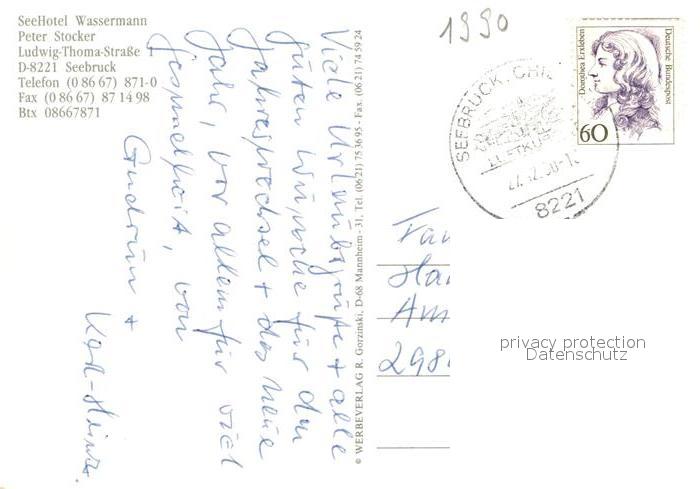 SeeHotel Wassermann
Peter Stocker
Ludwig-Thoma-Straße 1
D-8221 Seebruck
Telefon (0 86 67) 871-0
Fax (0 86 67) 87 14 98
Btx 08667871
1990
Viele Urlaubsgrüße + alle
guten Wünsche für den
Jahreswechsel + das neue
Jahr, vor allem für viel
Gesundheit, von
Gudrun +
Karl-Heinz.
© WERBEVERLAG R. Gorzinski, D-68 Mannheim - 31, Tel. (06 21) 75 36 95 - Fax. (06 21) 74 59 24
SEEBRUCK, CHI
LUFTKUR
27.12.90-1
8221
Dorothea Erxleben
Deutsche Bundespost
60
Fam
Ha
Am
298
privacy protection
Datenschutz